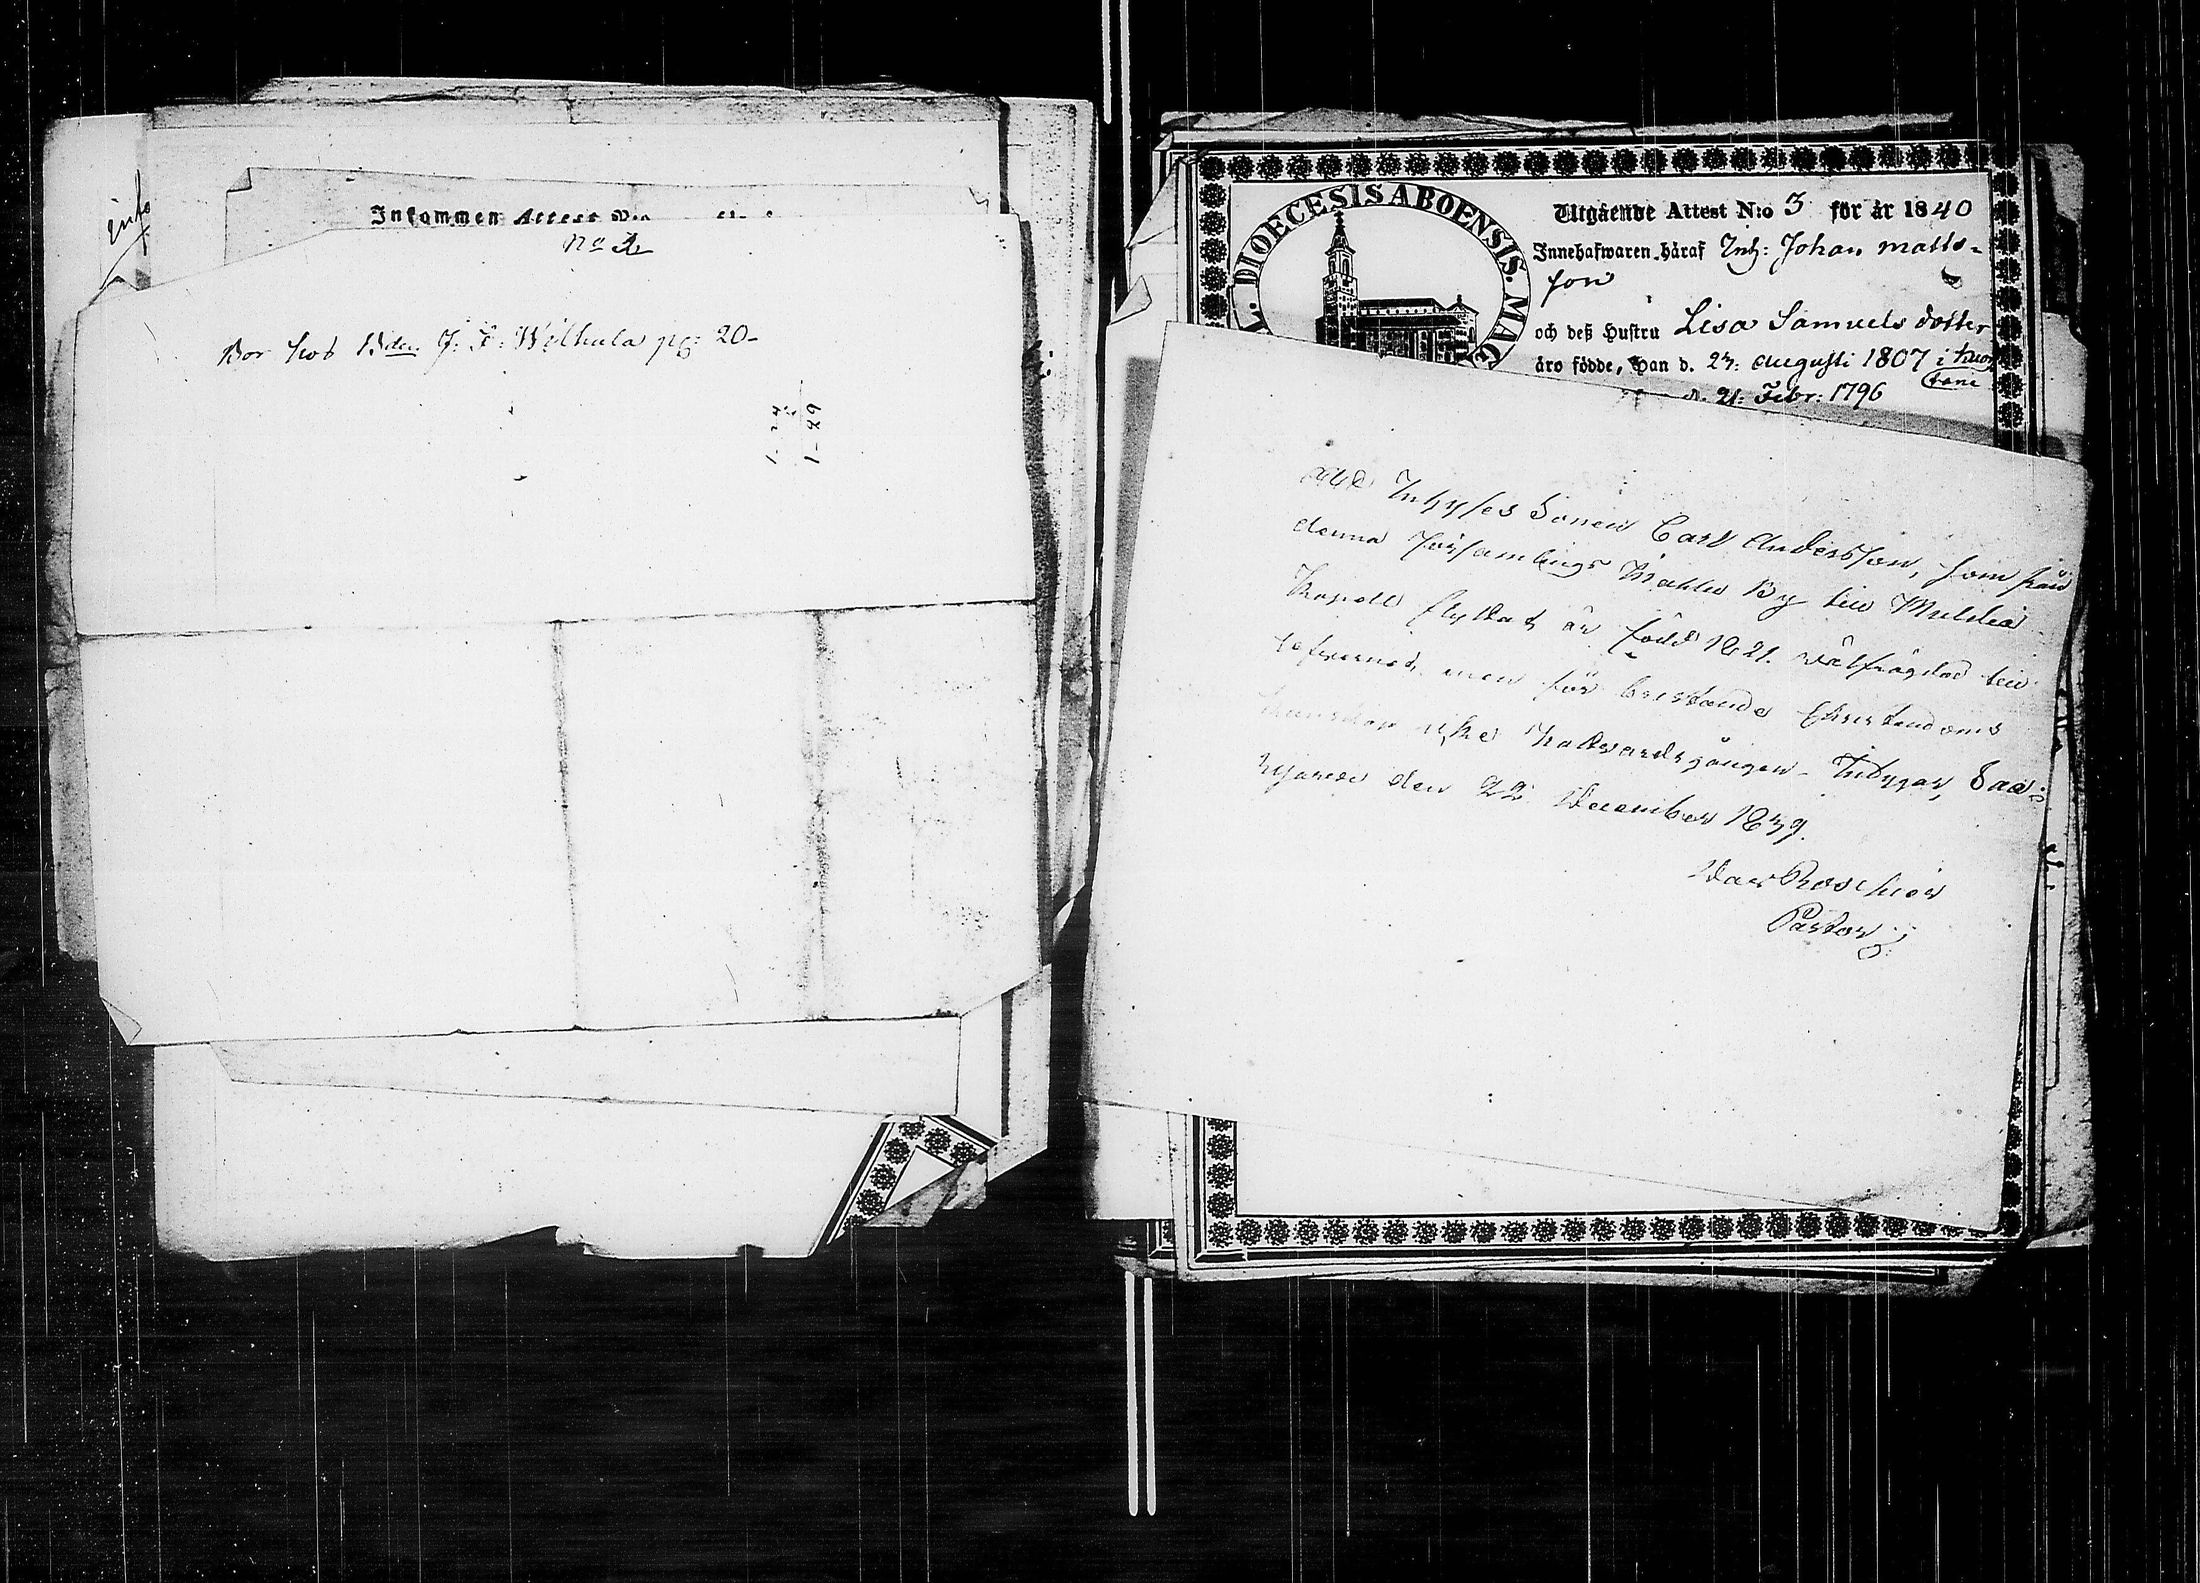 inf:
Inkommen Attest N:o
No 2
Bor hos Bden J: F: Wilhula pg: 20-
1-24
1-89
DIOECESIS ABOENSIS. MAG
Utgående Attest N:o 3 för år 1840
Innehafwaren häraf Inh: Johan Matts-
son
och deß Hustru Lisa Samuels dotter
äro födde, Han d. 23: Augusti 1807 i
d. 21: Febr: 1796
Inhyses Sonen Carl Andersson, som från
denna Församlings By till
Kapell flyttat är född 1821. wälfrägdad till
lefwernet, men för bristande Christendoms
kunskap icke Nattwardsgången - Intygar,
den 22 December 1839.
Pastor